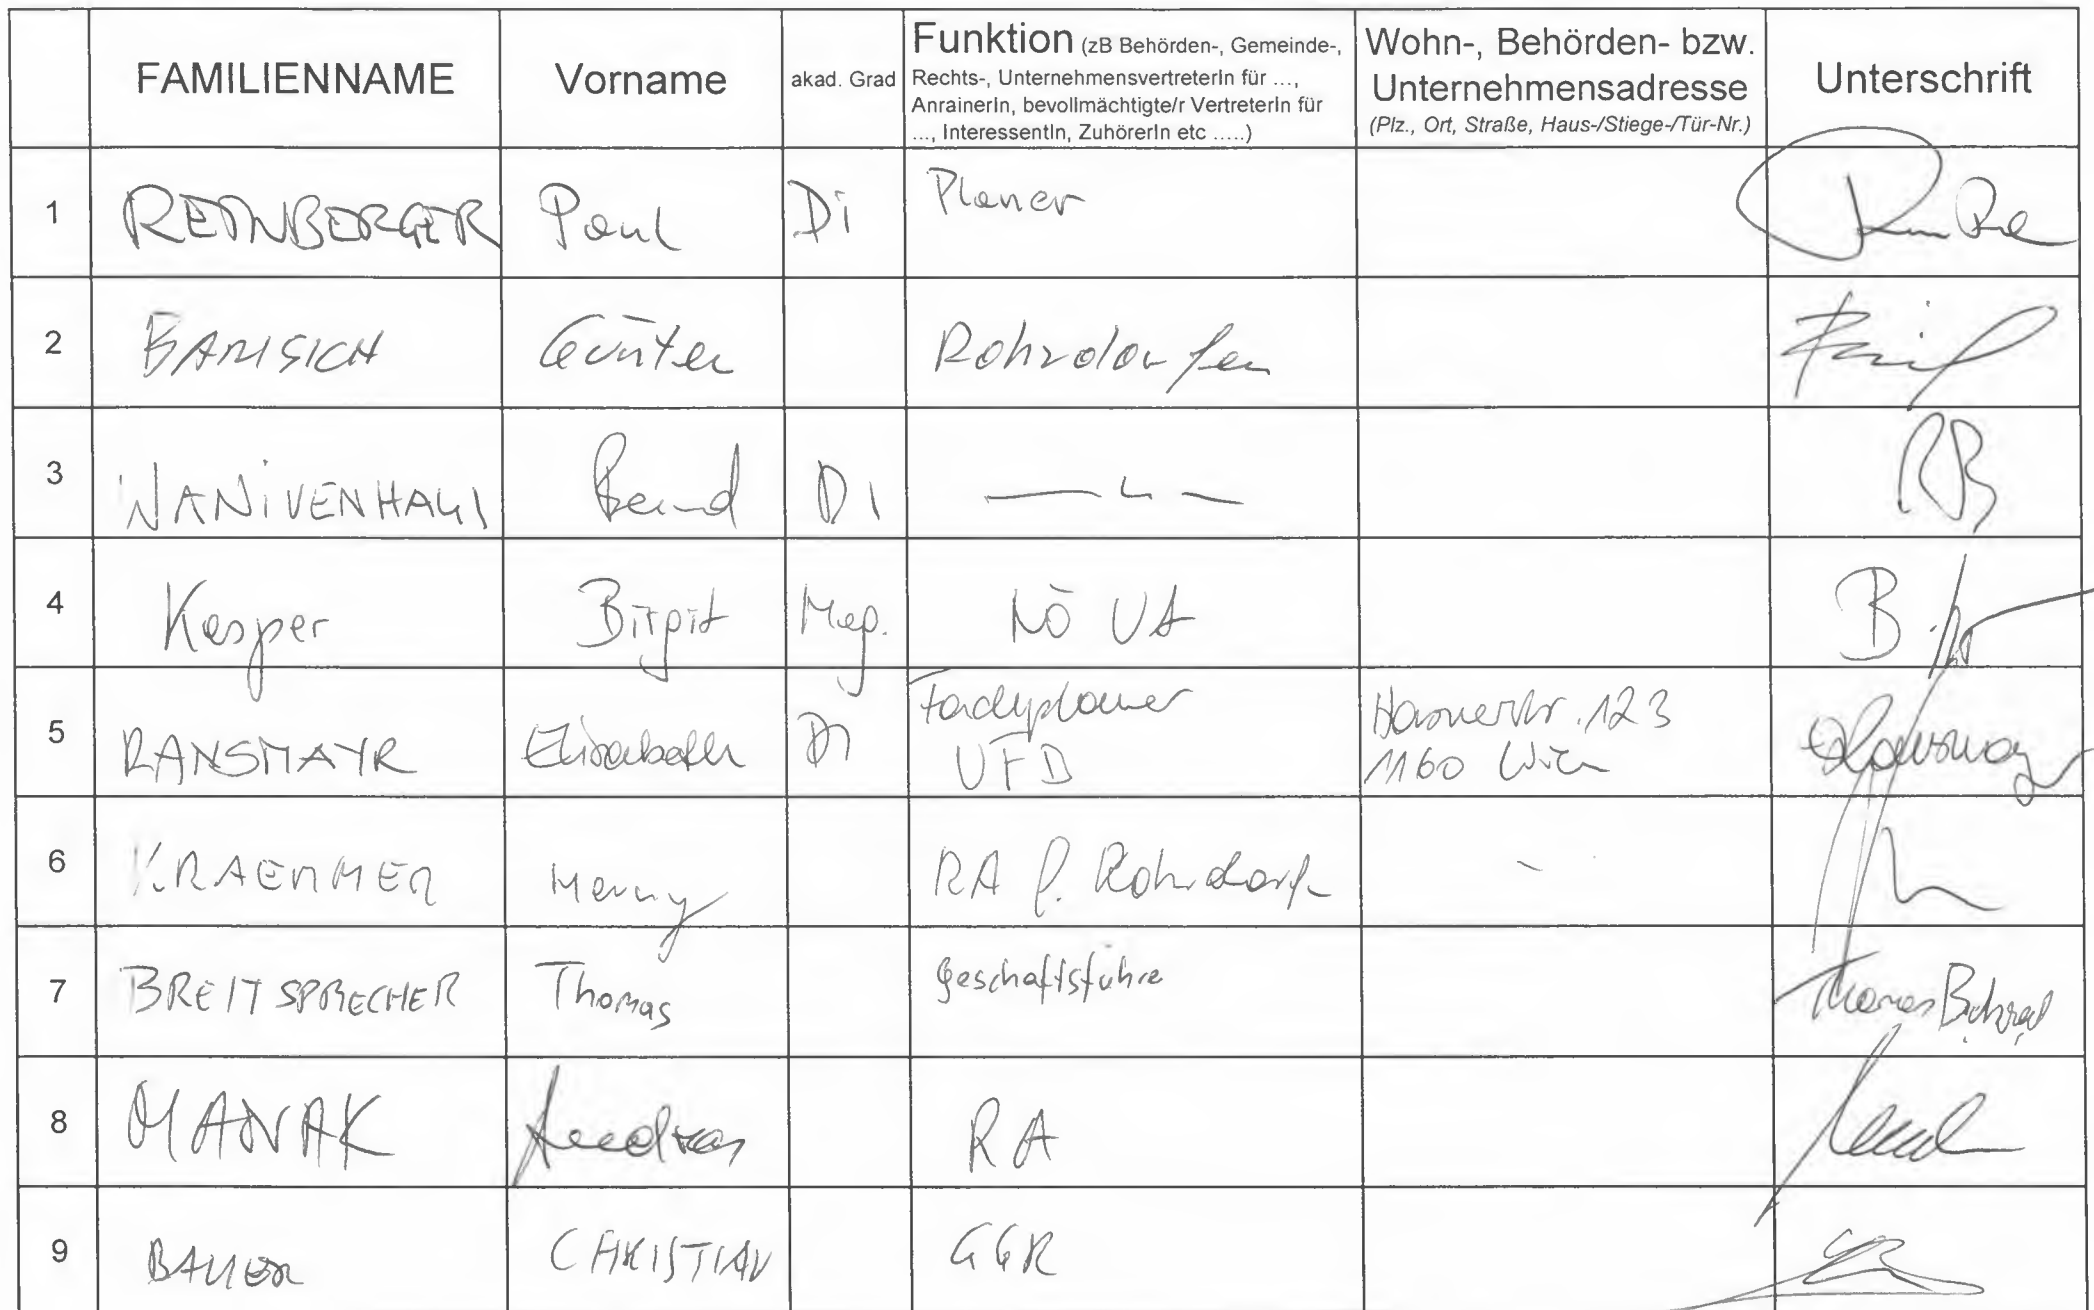 FAMILIENNAME Vorname akad. Grad Funktion (zB Behörden-, Gemeinde-, Rechts-, UnternehmensvertreterIn für ..., AnrainerIn, bevollmächtigte/r VertreterIn für ..., InteressentIn, ZuhörerIn etc .....) Wohn-, Behörden- bzw. Unternehmensadresse (Plz., Ort, Straße, Haus-/Stiege-/Tür-Nr.) Unterschrift
1 REINBERGER Paul DI Planer
2 Günter Rohrdorfer
3 WANIVENHAUS Bernd DI
4 Kasper Birgit Mag. NÖ UA
5 RANSMAYR Elisabeth DI Fachplaner UFD Hasnerstr. 123 1160 Wien
6 KRAEMMER RA f. Rohrdorfer
7 BREITSPRECHER Thomas Geschäftsführe
8 MANAK Andreas RA
9 BAUER CHRISTIAN GGR